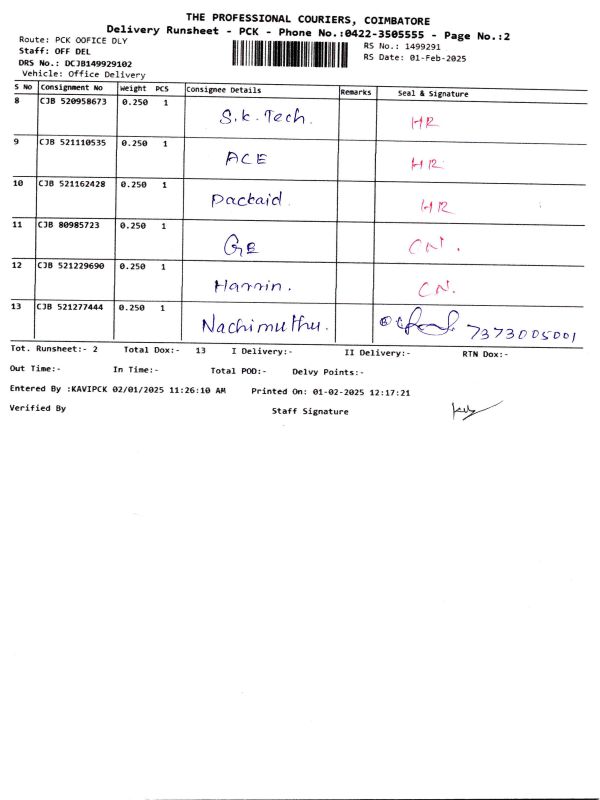 THE PROFESSIONAL COURIERS, COIMBATORE
Delivery Runsheet - PCK - Phone No.:0422-3505555 - Page No.:2
Route: PCK OOFICE DLY
RS No.: 1499291
Staff: OFF DEL
RS Date: 01-Feb-2025
DRS No.: DCJB149929102
Vehicle: Office Delivery
S No Consignment No Weight PCS Consignee Details Remarks Seal & Signature
8 CJB 520958673 0.250 1 S.k.Tech. HR
9 CJB 521110535 0.250 1 ACE HR
10 CJB 521162428 0.250 1 Packaid HR
11 CJB 80985723 0.250 1 GE CN.
12 CJB 521229690 0.250 1 CN.
13 CJB 521277444 0.250 1 Nachimuthu. 7373005001
Tot. Runsheet:- 2 Total Dox:- 13 I Delivery:- II Delivery:- RTN Dox:-
Out Time:- In Time:- Total POD:- Delvy Points:-
Entered By :KAVIPCK 02/01/2025 11:26:10 AM Printed On: 01-02-2025 12:17:21
Verified By Staff Signature